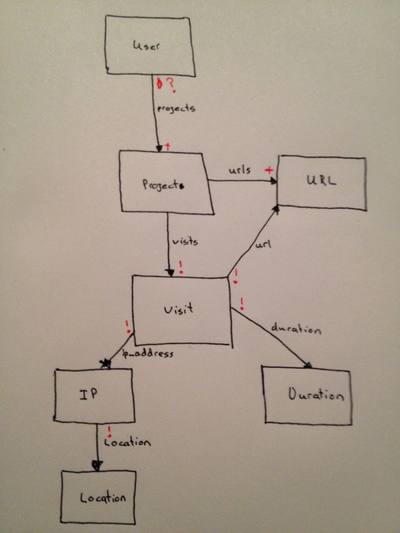 User
?
projects
+
Projects
urls
+
URL
visits
url
!
!
!
Visit
!
duration
ip_address
IP
Duration
!
Location
Location